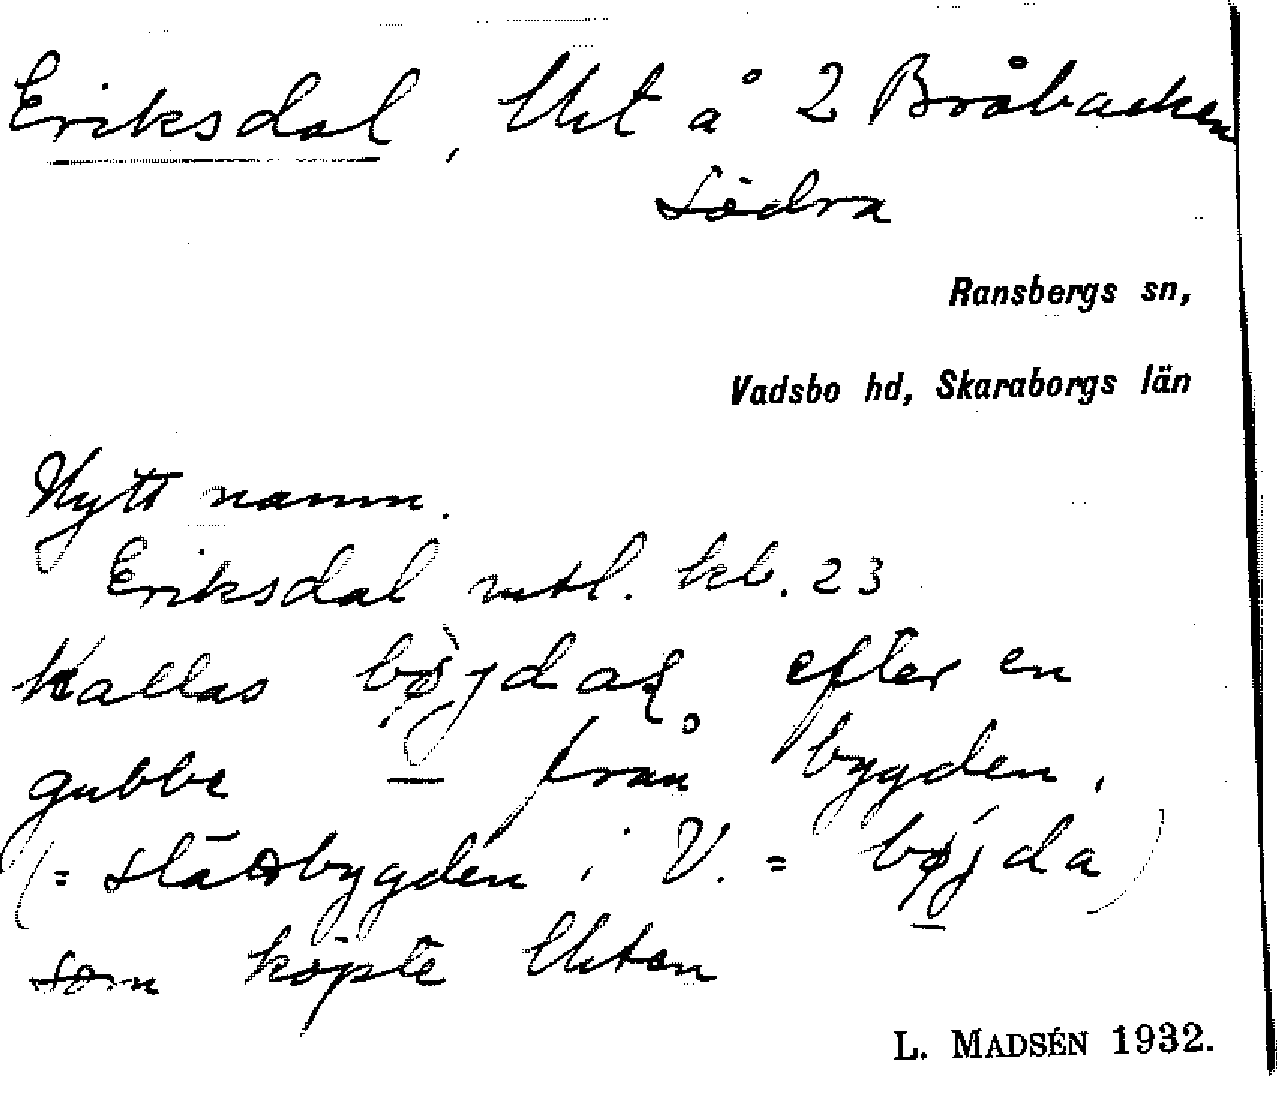 Eriksdal, lht å 2 Bråbacken
Södra
Ransbergs sn,
Vadsbo hd, Skaraborgs län
Nytt namn.
Eriksdal mtl. kb. 23
Kallas efter en
gubbe – från bygden,
(= slättbygden i V. = bøjda)
som köpte lhten
L. MADSÉN 1932.